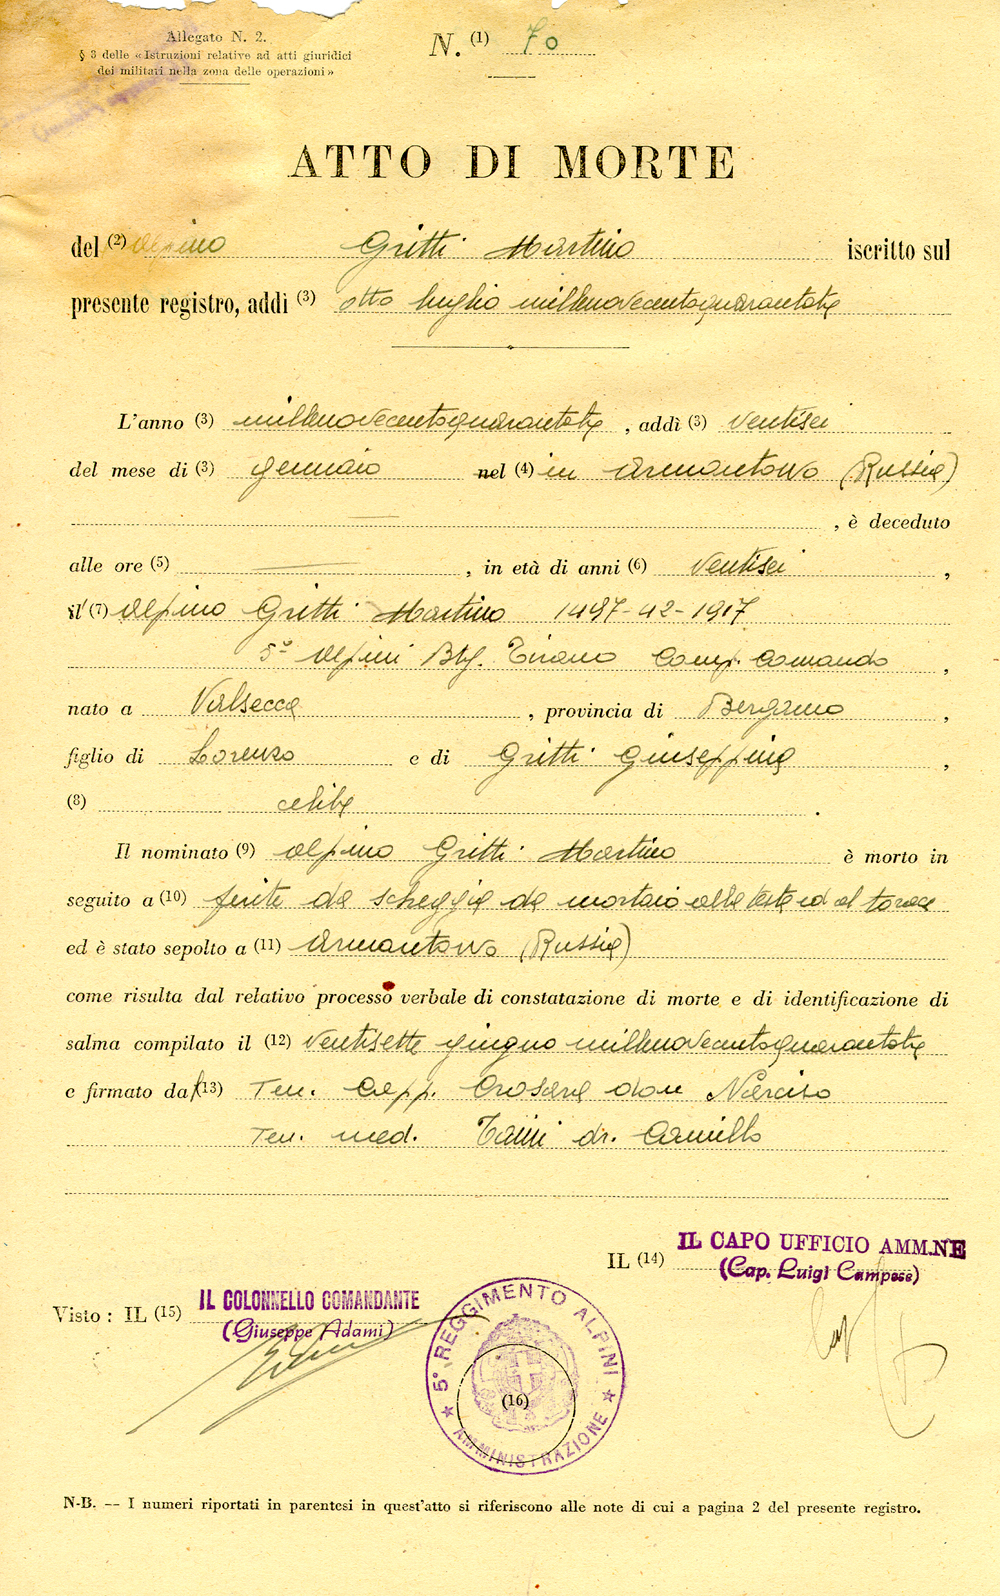 Allegato N. 2.
§ 3 delle « Istruzioni relative ad atti giuridici
dei militari nella zona delle operazioni »
N. (1) 70
ATTO DI MORTE
del (2) Alpino Gritti Martino iscritto sul
presente registro, addì (3) otto luglio millenovecentoquarantatre
L'anno (3) millenovecentoquarantatre, addì (3) ventisei
del mese di (3) gennaio nel (4) in Arnautowo (Russia)
, è deceduto
alle ore (5) , in età di anni (6) ventisei ,
il (7) Alpino Gritti Martino 1497-42-1917
5° Alpini Btg. Tirano Comp. Comando ,
nato a Valsecca , provincia di Bergamo ,
figlio di Lorenzo e di Gritti Giuseppina ,
(8) celibe .
Il nominato (9) alpino Gritti Martino è morto in
seguito a (10) ferite da scheggia da mortaio alla testa ed al torace
ed è stato sepolto a (11) Arnautowo (Russia)
come risulta dal relativo processo verbale di constatazione di morte e di identificazione di
salma compilato il (12) ventisette giugno millenovecentoquarantatre
e firmato da (13) Ten. Capp. Crosara don Narciso
Ten. med. dr. Camillo
IL (14) IL CAPO UFFICIO AMM.NE
(Cap. Luigi Campese)
Visto : IL (15) IL COLONNELLO COMANDANTE
(Giuseppe Adami)
5° REGGIMENTO ALPINI
(16)
AMMINISTRAZIONE
N-B. -- I numeri riportati in parentesi in quest'atto si riferiscono alle note di cui a pagina 2 del presente registro.